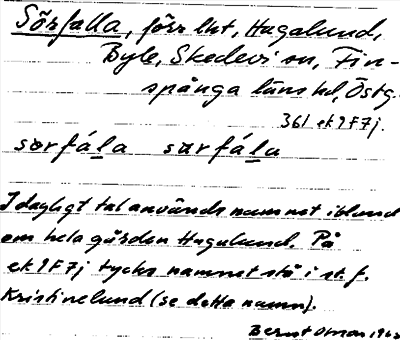 Sörfalla, förr lht, Hagalund,
Byle, Skedevi sn, Fin-
spånga läns hd, Östg.
36l ek 9F7j.
sørfáḷa sœrfáḷa
I dagligt tal används namnet ibland
om hela gården Hagalund. På
ek 9F7j tycks namnet stå i st. f.
Kristinelund (se detta namn).
Bernt Oman 196